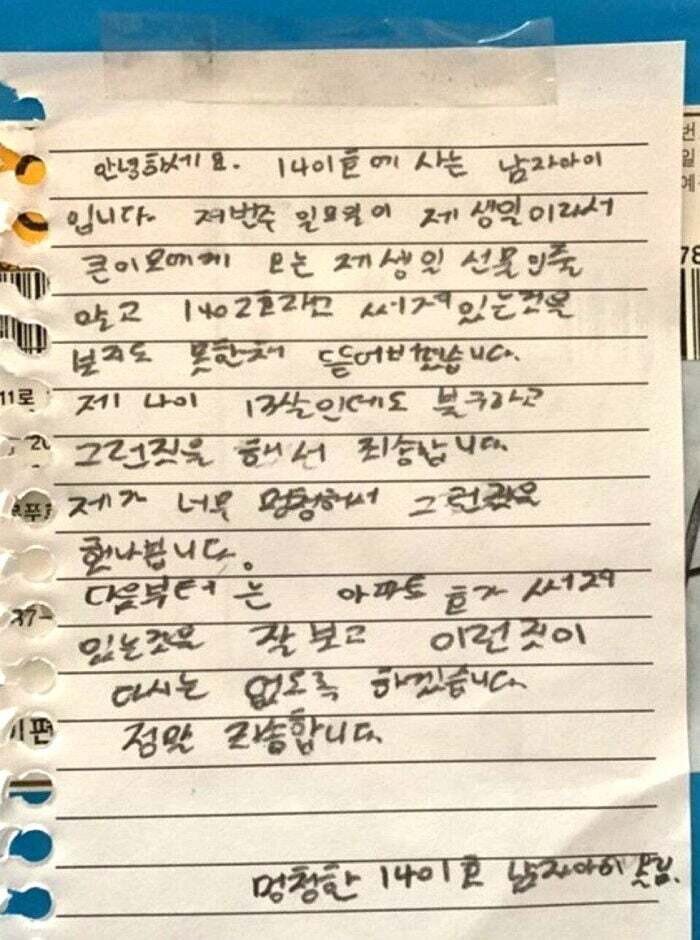 안녕하세요. 1401호에 사는 남자아이
입니다. 저번주 일요일이 제 생일이라서
큰이모에게 오는 제 생일 선물인줄
알고 1402호라고 써져있는것을
보지도 못한채 뜯어버렸습니다.
제 나이 13살인데도 불구하고
그런짓을 해서 죄송합니다.
제가 너무 멍청해서 그런
다음부터는 아파트 호가 써져
있는것을 잘 보고 이런짓이
다시는 없도록 하겠습니다.
정말 죄송합니다.
멍청한 1401호 남자아이 올림.
번
일
예
78
11로
20
37-
편